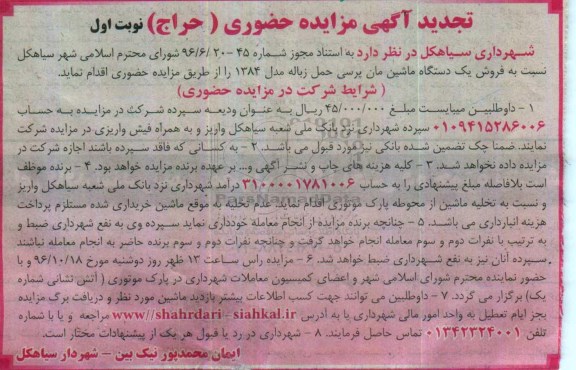 تجدید آگهی مزایده حضوری ( حراج ) نوبت اول
شهرداری سیاهکل در نظر دارد به استناد مجوز شماره ۴۵ -۹۶/۶/۲۰ شورای محترم اسلامی شهر سیاهکل
نسبت به فروش یک دستگاه ماشین مان پرسی حمل زباله مدل ۱۳۸۴ را از طریق مزایده حضوری اقدام نماید.
( شرایط شرکت در مزایده حضوری)
۱ - داوطلبین میبایست مبلغ ۴۵/۰۰۰/۰۰۰ ریال به عنوان ودیعه سپرده شرکت در مزایده به حساب
۰۱۰۹۴۱۵۲۸۶۰۰۶ سپرده شهرداری نزد بانک ملی شعبه سیاهکل واریز و به همراه فیش واریزی در مزایده شرکت
نمایند. ضمنا چک تضمین شده بانکی نیز مورد قبول می باشد. ۲ - به کسانی که فاقد سپرده باشند اجازه شرکت در
مزایده داده نخواهد شد. ۳ - کلیه هزینه های چاپ و نشر آگهی و... بر عهده برنده مزایده خواهد بود. ۴ - برنده موظف
است بلافاصله مبلغ پیشنهادی را به حساب ۳۱۰۰۰۰۱۷۸۱۰۰۶ درآمد شهرداری نزد بانک ملی شعبه سیاهکل واریز
و نسبت به تخلیه ماشین از محوطه پارک موتوری اقدام نماید عدم تخلیه به موقع ماشین خریداری شده مستلزم پرداخت
هزینه انبارداری می باشد. ۵ - چنانچه برنده مزایده از انجام معامله خودداری نماید سپرده وی به نفع شهرداری ضبط و
به ترتیب با نفرات دوم و سوم معامله انجام خواهد گرفت و چنانچه نفرات دوم و سوم برنده حاضر به انجام معامله نباشند
سپرده آنان نیز به نفع شهرداری ضبط خواهد شد. ۶ - مزایده راس ساعت ۱۲ ظهر روز دوشنبه مورخ ۹۶/۱۰/۱۸ و با
حضور نماینده محترم شورای اسلامی شهر و اعضای کمیسیون معاملات شهرداری در پارک موتوری ( آتش نشانی شماره
یک) برگزار می گردد. ۷ - داوطلبین می توانند جهت کسب اطلاعات بیشتر بازدید ماشین مورد نظر و دریافت برگ مزایده
بجز ایام تعطیل به واحد امور مالی شهرداری یا به آدرس www//shahrdari - siahkal.ir مراجعه و یا با شماره
تلفن ۰۱۳۴۲۳۲۴۰۰۱ تماس حاصل فرمایند. ۸ - شهرداری در رد یا قبول هر یک از پیشنهادات مختار است.
ایمان محمدپور نیک بین - شهردار سیاهکل